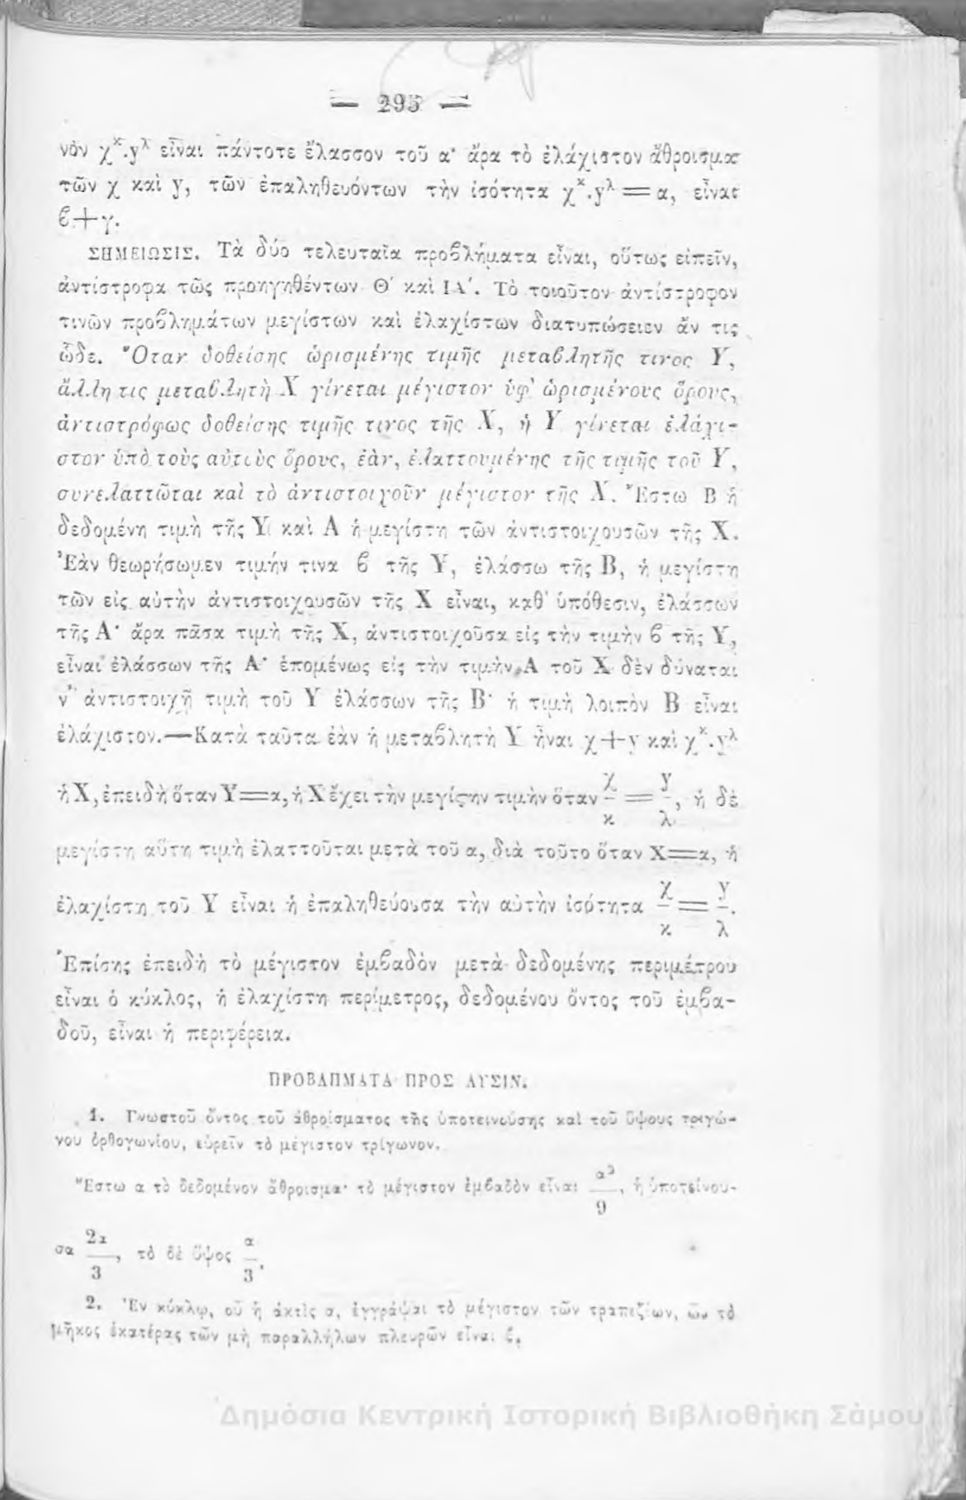 — 295 —
νὸν χ^κ.y^λ εἶναι πάντοτε ἔλασσον τοῦ α· ἄρα τὸ ἐλάχιστον ἄθροισμα
τῶν χ καὶ y, τῶν ἐπαληθευόντων τὴν ἰσότητα χ^κ.y^λ = α, εἶναι
ϐ+γ.
ΣΗΜΕΙΩΣΙΣ. Τὰ δύο τελευταῖα προϐλήματα εἶναι, οὕτως εἰπεῖν,
ἀντίστροφα τῶς προηγηθέντων Θ΄ καὶ ΙΑ΄. Τὸ τοιοῦτον ἀντίστροφον
τινῶν προϐλημάτων μεγίστων καὶ ἐλαχίστων διατυπώσειεν ἄν τις
ὧδε. Ὅταν δοθείσης ὡρισμένης τιμῆς μεταϐλητῆς τινος Υ,
ἄλλη τις μεταϐλητὴ Χ γίνεται μέγιστον ὑφ' ὡρισμένους ὅρους,
ἀντιστρόφως δοθείσης τιμῆς τινος τῆς Χ, ἡ Υ γίνεται ἐλάχι-
στον ὑπὸ τοὺς αὐτοὺς ὅρους, ἐὰν, ἐλαττουμένης τῆς τιμῆς τοῦ Υ,
συνελαττῶται καὶ τὸ ἀντιστοιχοῦν μέγιστον τῆς Χ. Ἔστω Β ἡ
δεδομένη τιμὴ τῆς Υ καὶ Α ἡ μεγίστη τῶν ἀντιστοιχουσῶν τῆς Χ.
Ἐὰν θεωρήσωμεν τιμήν τινα ϐ τῆς Υ, ἐλάσσω τῆς Β, ἡ μεγίστη
τῶν εἰς αὐτὴν ἀντιστοιχουσῶν τῆς Χ εἶναι, καθ' ὑπόθεσιν, ἐλάσσων
τῆς Α· ἄρα πᾶσα τιμὴ τῆς Χ, ἀντιστοιχοῦσα εἰς τὴν τιμὴν ϐ τῆς Υ,
εἶναι ἐλάσσων τῆς Α· ἑπομένως εἰς τὴν τιμὴν Α τοῦ Χ δὲν δύναται
ν' ἀντιστοιχῇ τιμὴ τοῦ Υ ἐλάσσων τῆς Β· ἡ τιμὴ λοιπὸν Β εἶναι
ἐλάχιστον.—Κατὰ ταῦτα ἐὰν ἡ μεταϐλητὴ Υ ἦναι χ+y καὶ χ^κ.y^λ
ἡ Χ, ἐπειδὴ ὅταν Υ=α, ἡ Χ ἔχει τὴν μεγίστην τιμὴν ὅταν χ/κ = y/λ, ἡ δὲ
μεγίστη αὕτη τιμὴ ἐλαττοῦται μετὰ τοῦ α, διὰ τοῦτο ὅταν Χ=α, ἡ
ἐλαχίστη τοῦ Υ εἶναι ἡ ἐπαληθεύουσα τὴν αὐτὴν ἰσότητα χ/κ = y/λ.
Ἐπίσης ἐπειδὴ τὸ μέγιστον ἐμϐαδὸν μετὰ δεδομένης περιμέτρου
εἶναι ὁ κύκλος, ἡ ἐλαχίστη περίμετρος, δεδομένου ὄντος τοῦ ἐμϐα-
δοῦ, εἶναι ἡ περιφέρεια.
ΠΡΟΒΛΗΜΑΤΑ ΠΡΟΣ ΛΥΣΙΝ.
1. Γνωστοῦ ὄντος τοῦ ἀθροίσματος τῆς ὑποτεινούσης καὶ τοῦ ὕψους τριγώ-
νου ὀρθογωνίου, εὑρεῖν τὸ μέγιστον τρίγωνον.
Ἔστω α τὸ δεδομένον ἄθροισμα· τὸ μέγιστον ἐμϐαδὸν εἶναι α²/9, ἡ ὑποτείνου-
σα 2α/3, τὸ δὲ ὕψος α/3.
2. Ἐν κύκλῳ, οὗ ἡ ἀκτὶς α, ἐγγράψαι τὸ μέγιστον τῶν τραπεζίων, ὧν τὸ
μῆκος ἑκατέρας τῶν μὴ παραλλήλων πλευρῶν εἶναι ϐ.
Δημόσια Κεντρική Ιστορική Βιβλιοθήκη Σάμου